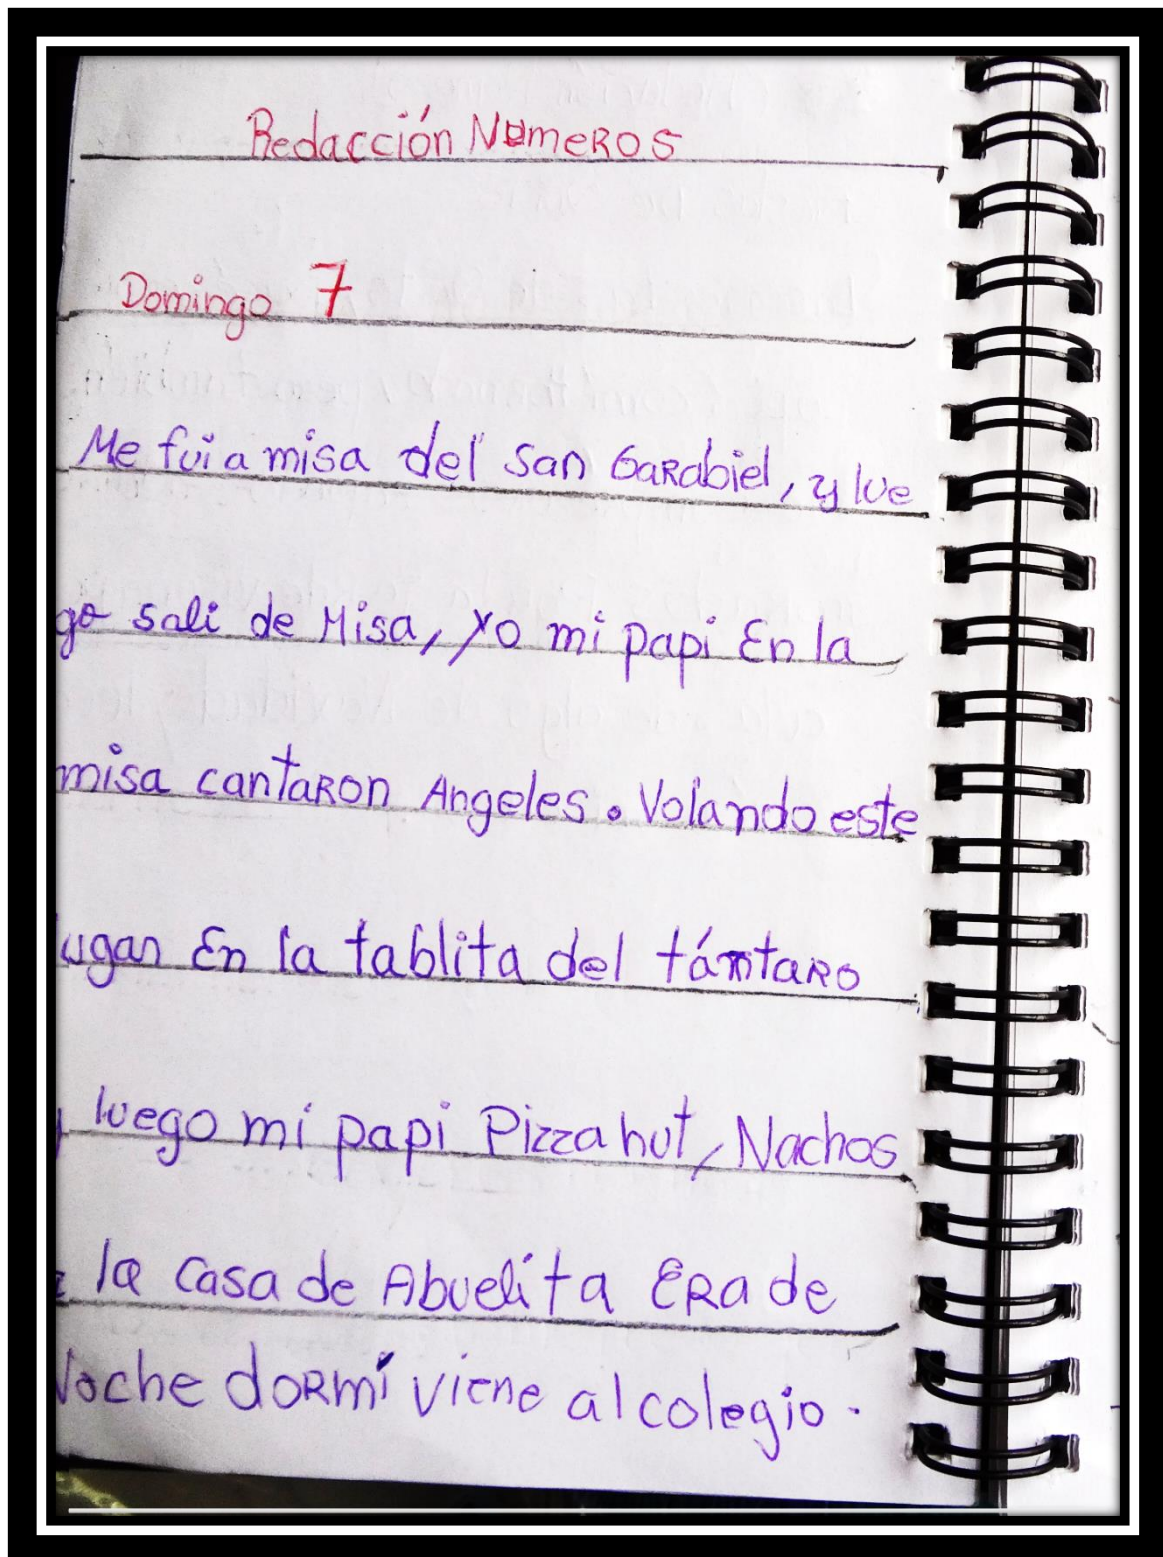 Redacción NumeROS
Domingo 7
Me fui a misa del San GaRabiel, y lue
go sali de Misa, yo mi papi En la
misa cantaRon Angeles. Volando este
lugan En la tablita del támtaRo
luego mi papi Pizza hut, Nachos
la casa de Abuelita ERa de
Noche doRmí viene al colegio.